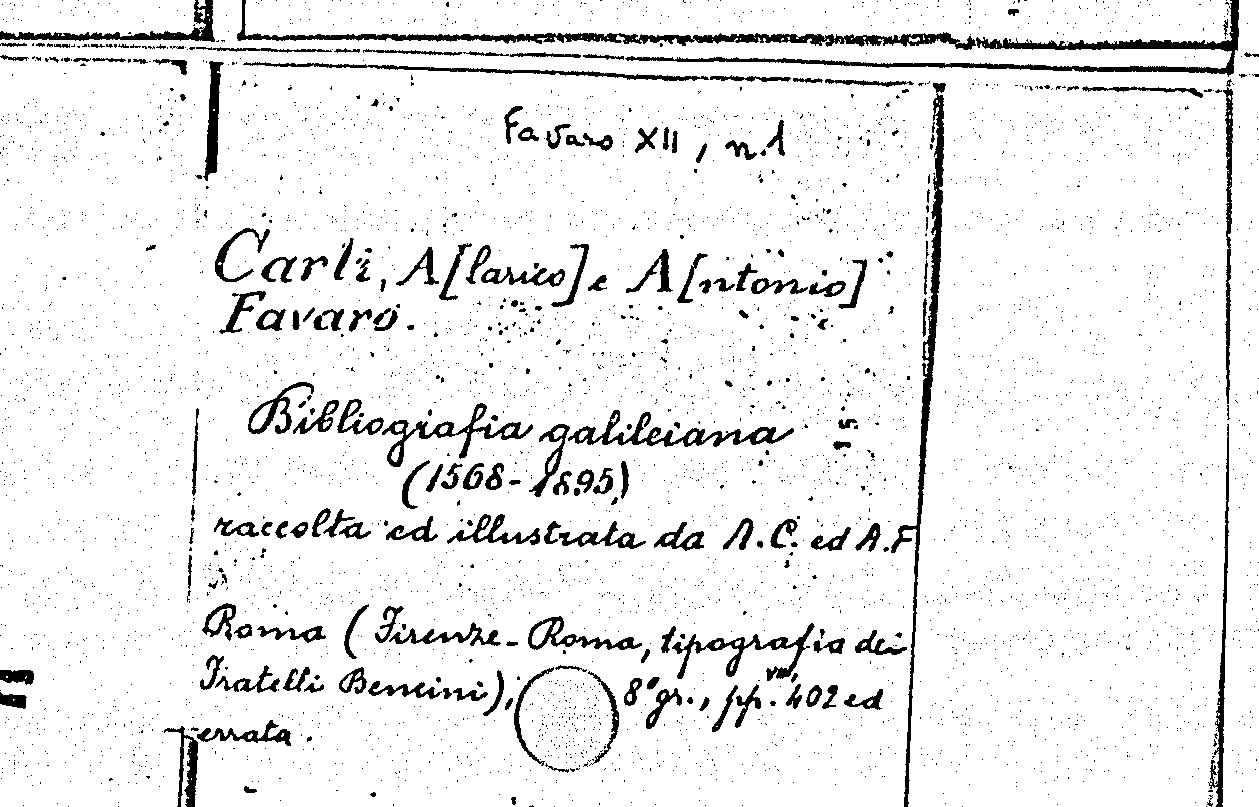 Favaro XII, n.1
Carli, A[larico] e A[ntonio]
Favaro.
Bibliografia galileiana
15
(1568-1895)
raccolta ed illustrata da A.C. ed A.F
Roma (Firenze-Roma, tipografia dei
Fratelli Bencini), 8° gr., pp. VIII, 402 ed
errata.